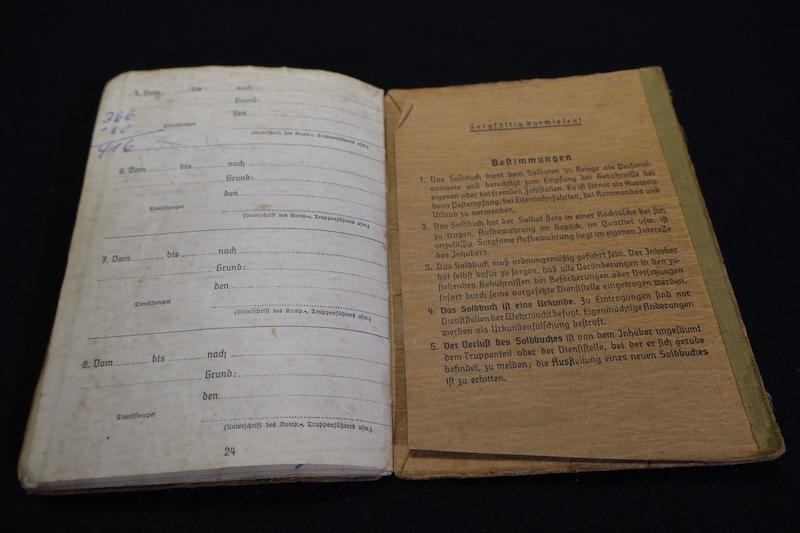 5. Vom bis nach
Grund:
den
Dienststempel
(Unterschrift des Komp.-, Truppenführers usw.)
366
50
416
6. Vom bis nach
Grund:
den
Dienststempel
(Unterschrift des Komp.-, Truppenführers usw.)
7. Vom bis nach
Grund:
den
Dienststempel
(Unterschrift des Komp.-, Truppenführers usw.)
8. Vom bis nach
Grund:
den
Dienststempel
(Unterschrift des Komp.-, Truppenführers usw.)
24
Sorgfältig durchlesen!
Bestimmungen
1. Das Soldbuch dient dem Soldaten im Kriege als Personal-
ausweis und berechtigt zum Empfang der Gebührnisse bei
eigenen oder bei fremden Zahlstellen. Es ist ferner als Ausweis
beim Postempfang, bei Eisenbahnfahrten, bei Kommandos und
Urlaub zu verwenden.
2. Das Soldbuch hat der Soldat stets in einer Rocktasche bei sich
zu tragen. Aufbewahrung im Gepäck, im Quartier usw. ist
unzulässig. Sorgsame Aufbewahrung liegt im eigenen Interesse
des Inhabers.
3. Das Soldbuch muß ordnungsmäßig geführt sein. Der Inhaber
hat selbst dafür zu sorgen, daß alle Veränderungen in den zu-
stehenden Gebührnissen bei Beförderungen oder Versetzungen
sofort durch seine vorgesetzte Dienststelle eingetragen werden.
4. Das Soldbuch ist eine Urkunde. Zu Eintragungen sind nur
Dienststellen der Wehrmacht befugt. Eigenmächtige Änderungen
werden als Urkundenfälschung bestraft.
5. Der Verlust des Soldbuches ist von dem Inhaber ungesäumt
dem Truppenteil oder der Dienststelle, bei der er sich gerade
befindet, zu melden; die Ausstellung eines neuen Soldbuches
ist zu erbitten.